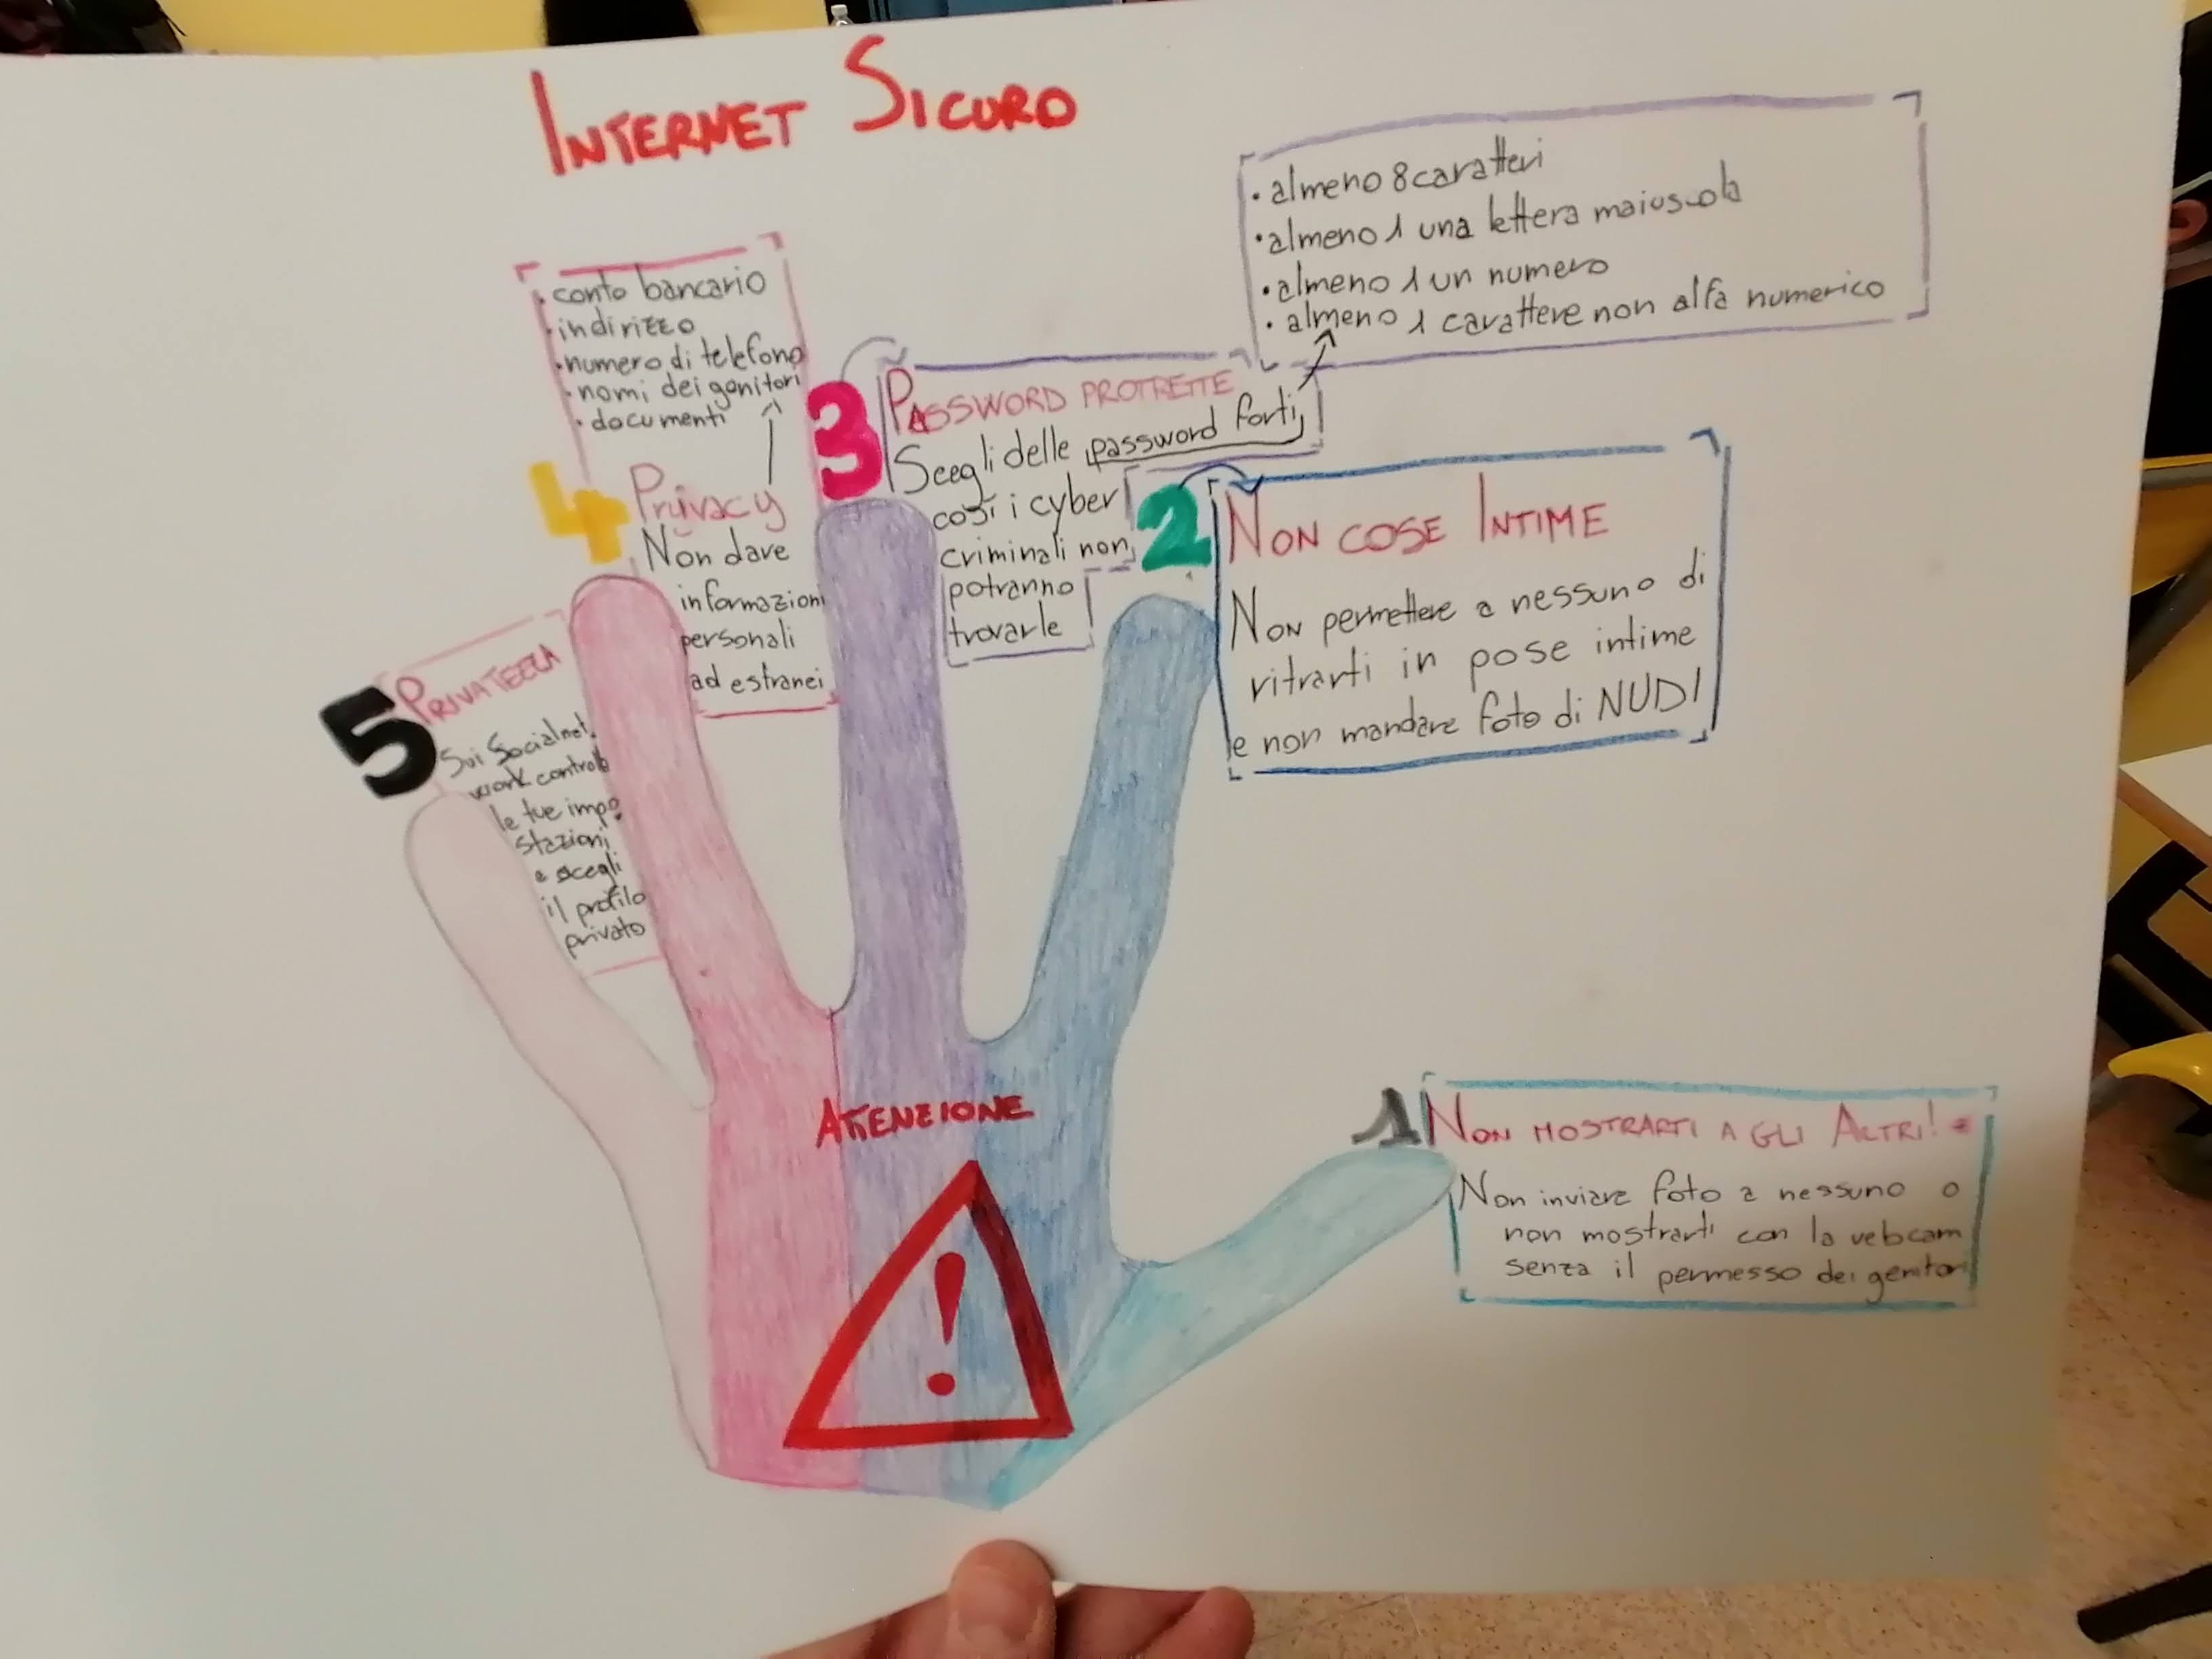 INTERNET SICURO
• almeno 8 caratteri
• almeno 1 una lettera maiuscola
• almeno 1 un numero
• almeno 1 carattere non alfa numerico
• conto bancario
• indirizzo
• numero di telefono
• nomi dei genitori
• documenti
3
PASSWORD PROTRETTE
Scegli delle password forti,
così i cyber
criminali non
potranno
trovarle
2
NON COSE INTIME
NON permettere a nessuno di
ritrarti in pose intime
e non mandare foto di NUDI
4
Privacy
Non dare
informazioni
personali
ad estranei
5
PRIVATEZZA
Sui Social net
work controlla
le tue impo
stazioni
e scegli
il profilo
privato
ATTENZIONE
!
1
NON MOSTRARTI A GLI ALTRI!
Non inviare foto a nessuno o
non mostrarti con la vebcam
senza il permesso dei genitori